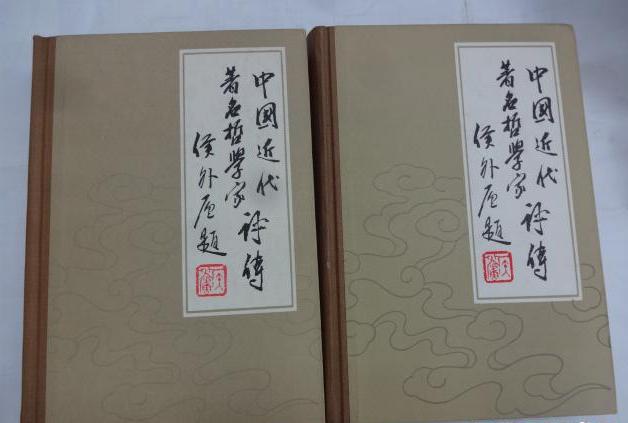 中國近代
著名哲學家評傳
侯外廬題
中國近代
著名哲學家評傳
侯外廬題